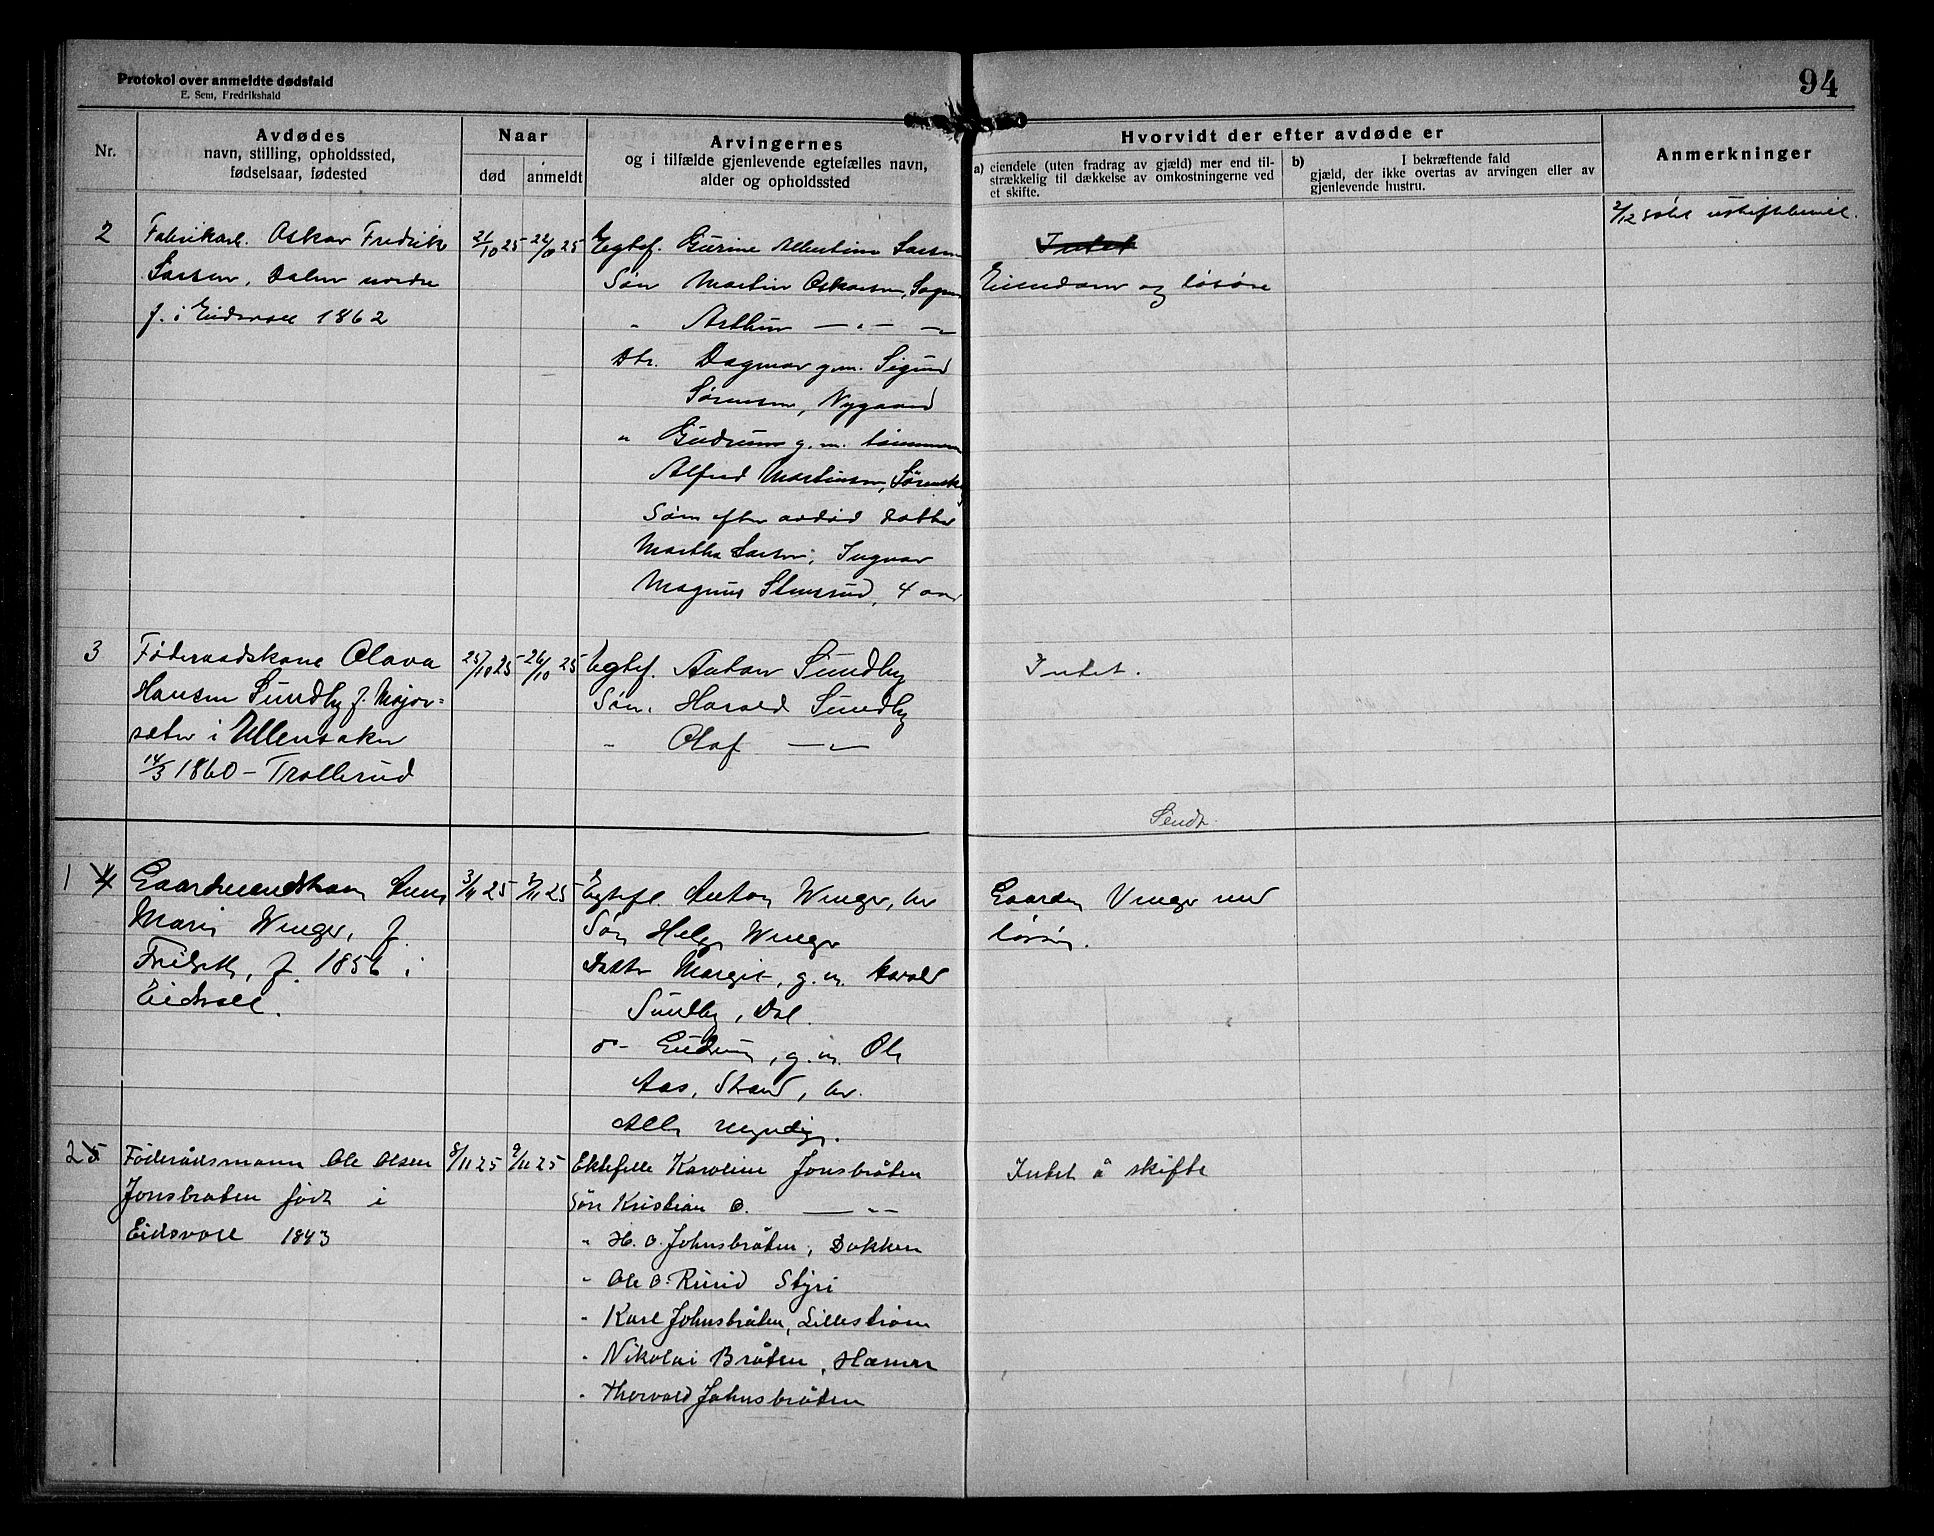 Protokol over anmeldte dødsfald
E. Sem, Fredrikshald
94
Nr.
Avdødes
navn, stilling, opholdssted,
fødselsaar, fødested
Naar
død
anmeldt
Arvingernes
og i tilfælde gjenlevende egtefælles navn,
alder og opholdssted
Hvorvidt der efter avdøde er
a) eiendele (uten fradrag av gjæld) mer end til-
strækkelig til dækkelse av omkostningerne ved
et skifte.
b) I bekræftende fald
gjæld, der ikke overtas av arvingen eller av
gjenlevende hustru.
Anmerkninger
2
Oskar Fredrik
Larsen, Dalen nordre
f. i Eidsvoll 1862
21/10 25
22/10 25
Egtef. Gurine Albertine Larsen
Søn Martin Oskarsen,
" Arthur — " —
Dtr. Dagmar g.m. Sigurd
Sørensen, Nygaard
" Gudrun g.m.
Alfred Martinsen,
Søn efter avdød datter
Martha Larsen; Ingvar
Magnus Stensrud, 4 aar
Intet
Eiendom og løsøre
2/12
3
Føderaadskone Olava
Hansen Sundby f. Mojor-
sæter i Ullensaker
14/3 1860 - Trollerud
25/10 25
26/10 25
Egtef. Anton Sundby
Søn. Harald Sundby
" Olaf — " —
Intet.
Sendt.
1 4
Gaardmandskone Anna
Marie Winger, f.
f. 1856 i
Eidsvoll.
3/11 25
3/11 25
Egtefl. Anton Winger, her
Søn Helge Winger
Datter Margit, g.m. Harald
Sundby, Dal.
do - Gudrun, g.m. Ole
Aas, Strand, her.
Alle myndige.
Gaarden Vinger med
løsøre.
2 5
Føderådsmann Ole Olsen
Jonsbråten født i
Eidsvoll 1843
8/11 25
9/11 25
Ektefelle Karoline Jonsbråten
Søn Kristian O. — " —
" H. O. Johnsbråten, Dokken
" Ole O. Rusid Styri
" Karl Johnsbråten, Lillestrøm
" Nikolai Bråten, Hamar
" Thorvald Johnsbråten
Intet å skifte